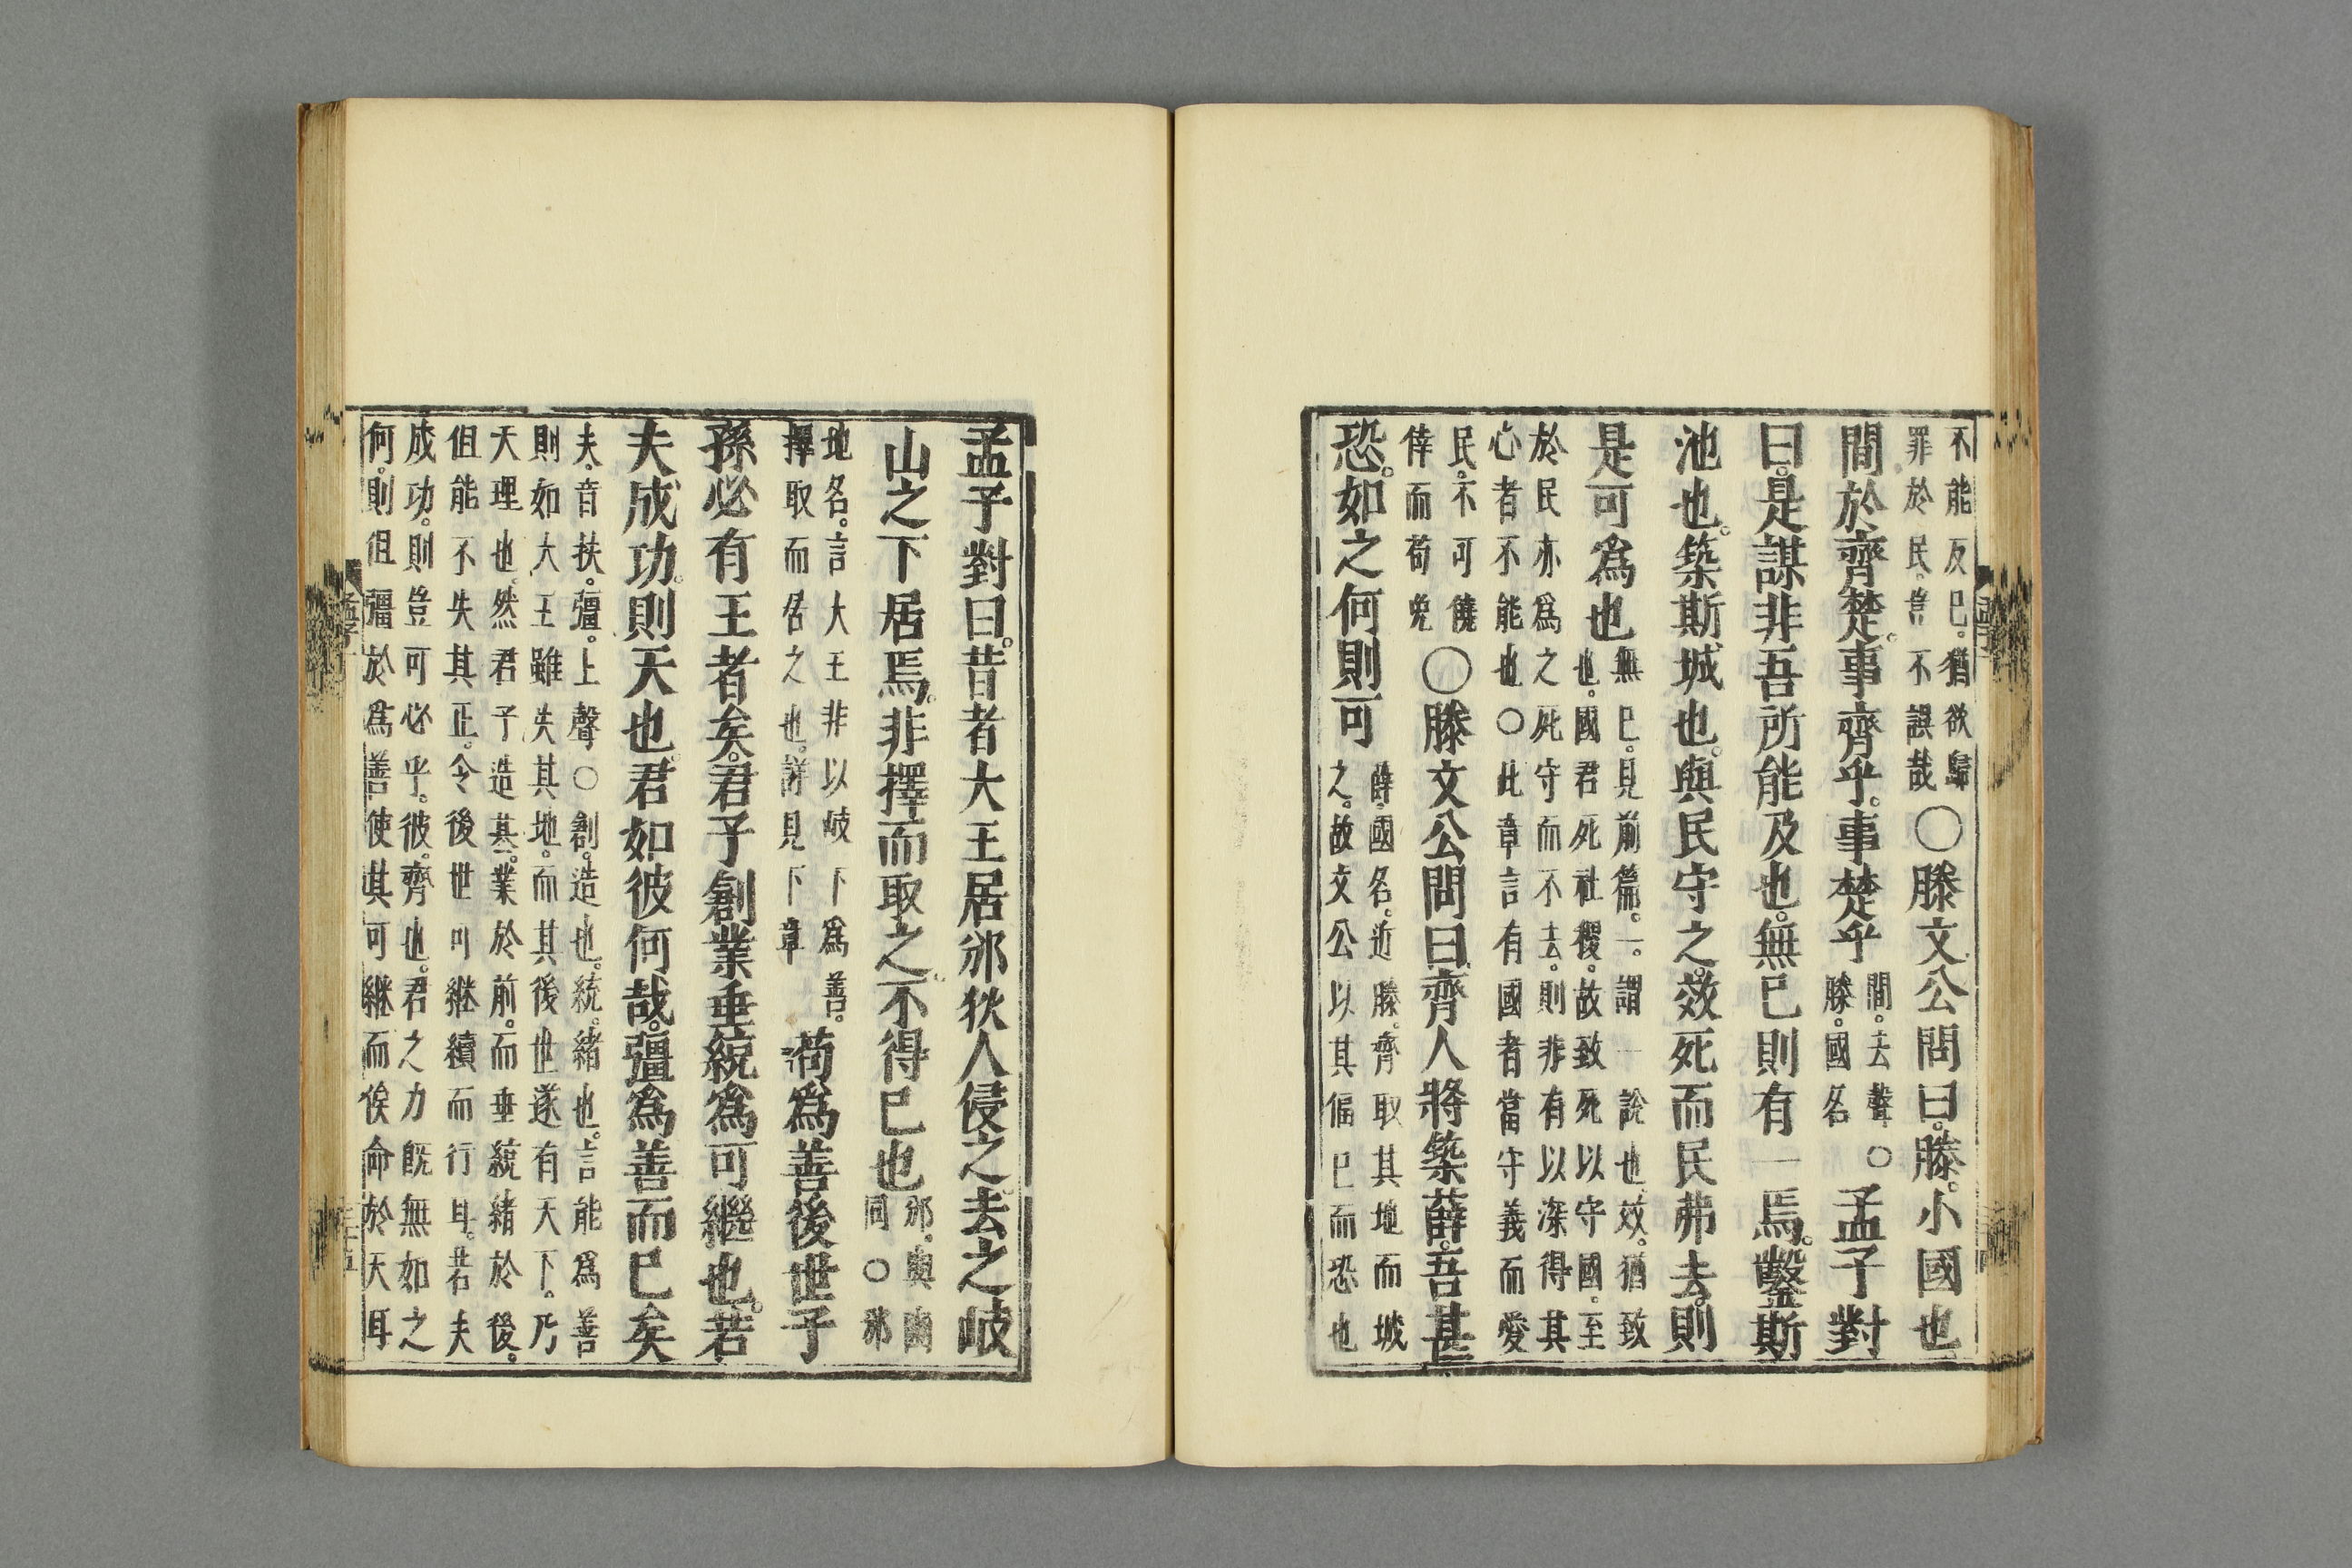 不能反已。猶欲歸
罪於民。豈不誤哉
○滕文公問曰。滕。小國也
間於齊楚。事齊乎。事楚乎
間。去聲○
滕。國名
孟子對
曰。是謀非吾所能及也。無已則有一焉。鑿斯
池也。築斯城也。與民守之。效死而民弗去。則
是可爲也
無已。見前篇。一。謂一說也。效。猶致
也。國君死社稷。故致死以守國。至
於民亦爲之死守而不去。則非有以深得其
心者不能也○此章言有國者當守義而愛
民。不可僥
倖而苟免
○滕文公問曰。齊人將築薛。吾甚
恐。如之何則可
薛。國名。近滕。齊取其地而城
之。故文公以其偪已而恐也
孟子對曰。昔者大王居邠。狄人侵之。去之岐
山之下居焉。非擇而取之。不得已也
邠。與豳
同○邠
地名。言大王非以岐下爲善。
擇取而居之也。詳見下章
苟爲善後世子
孫必有王者矣。君子創業垂統爲可繼也。若
夫成功。則天也。君如彼何哉。彊爲善而已矣
夫。音扶。彊。上聲○創。造也。統。緒也。言能爲善
則如大王雖失其地。而其後世遂有天下。乃
天理也。然君子造基業於前。而垂統緒於後。
但能不失其正。令後世可継續而行耳。若夫
成功。則豈可必乎。彼。齊也。君之力既無如之
何。則但彊於爲善使其可継而俟命於天耳
孟子